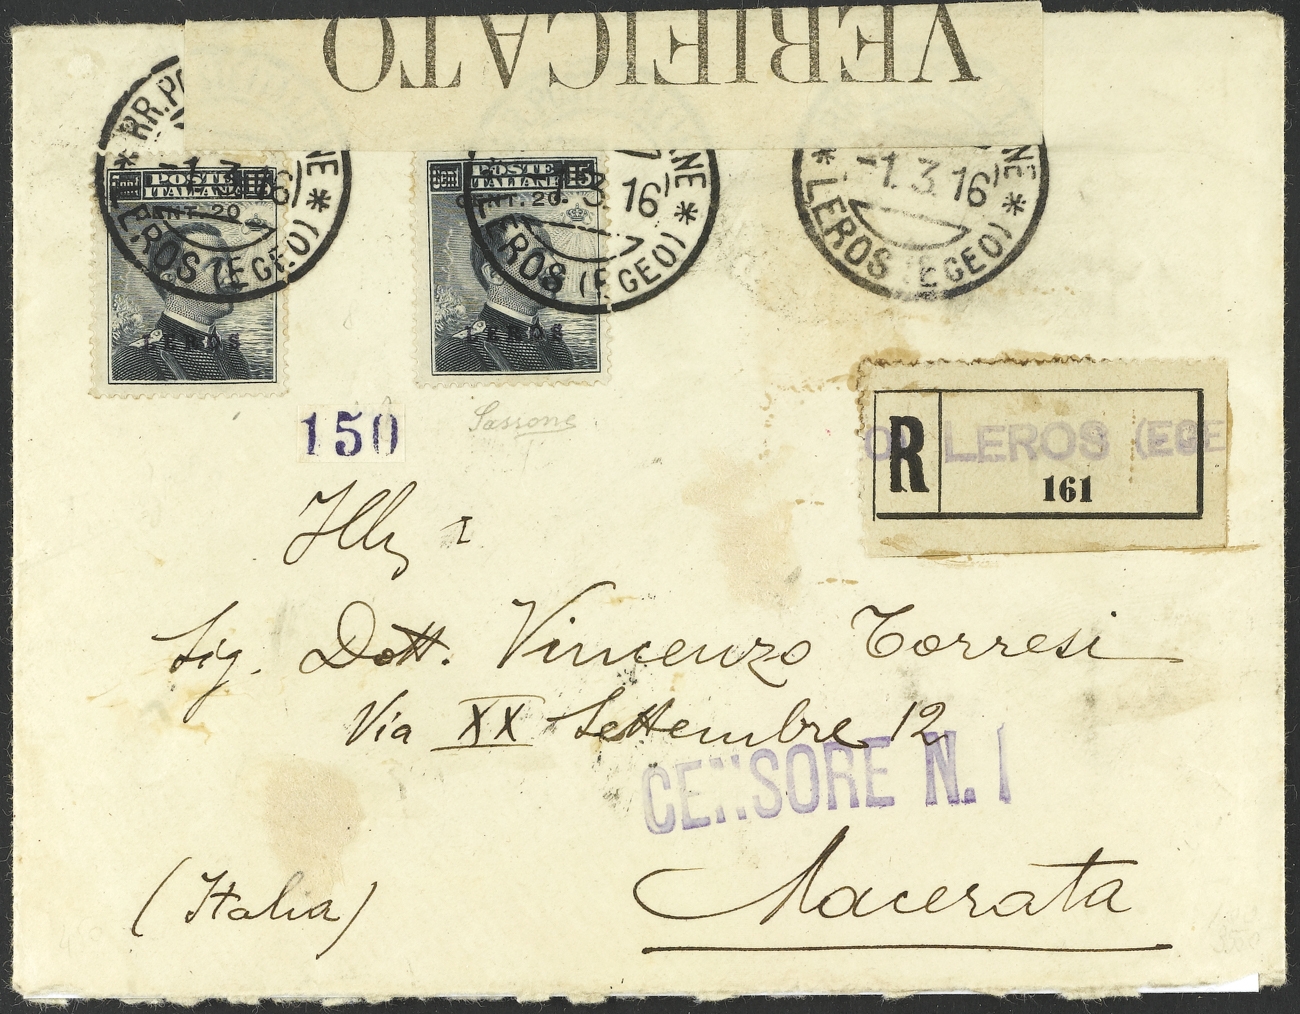 VERIFICATO
RR.PO NE
-1.3 16
LEROS (EGEO)
POSTE ITALIANE
CENT. 20
LEROS
NE
-1.3 16
LEROS (EGEO)
15
POSTE ITALIANE 15
CENT. 20.
LEROS
NE
-1.3 16
LEROS (EGEO)
150
Sassone
R
LEROS (EGE
161
Ill
Sig. Dott. Vincenzo Torresi
Via XX Settembre 12
CENSORE N. 1
Macerata
(Italia)